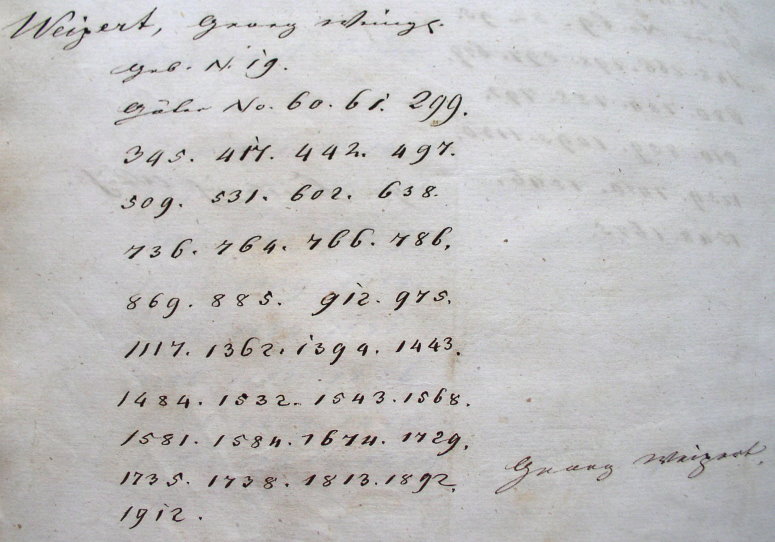 Weipert, Georg
Geb. N. 19.
Güter No. 60. 61. 299.
345. 417. 442. 497.
509. 531. 602. 638.
736. 764. 766. 786.
869. 885. 912. 975.
1117. 1362. 1394. 1443.
1484. 1532. 1543. 1568.
1581. 1584. 1674. 1729.
1735. 1738. 1813. 1892.
1912.
Georg Weipert.